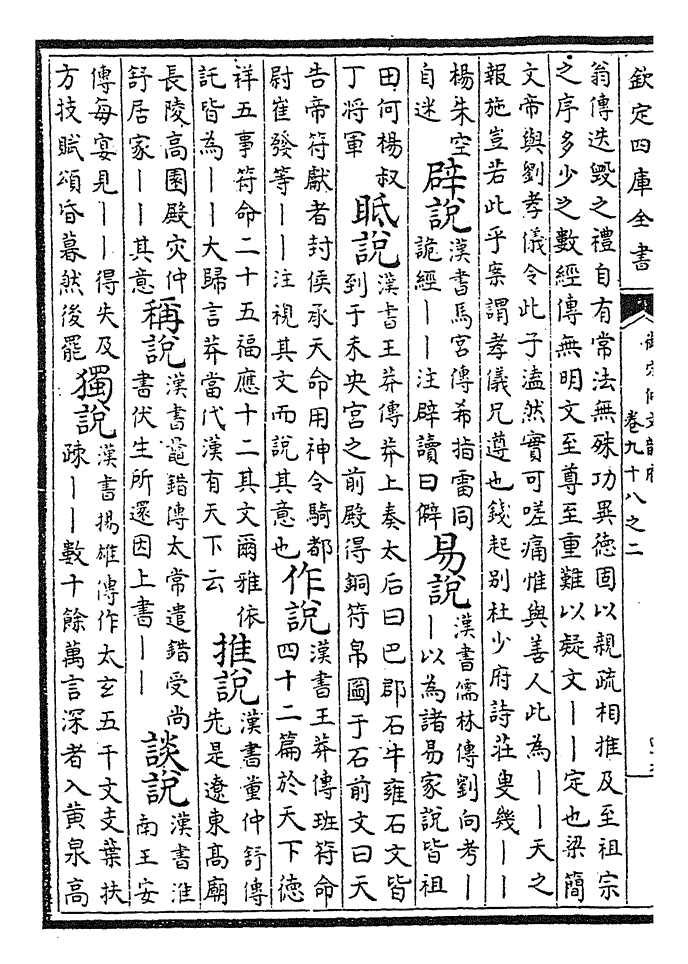 欽定四庫全書
卷九十八之二
翁傳迭毀之禮自有常法無殊功異德固以親疏相推及至祖宗
之序多少之數經傳無明文至尊至重難以疑文——定也梁簡
文帝與劉孝儀令此子溘然實可嗟痛惟與善人此為——天之
報施豈若此乎案謂孝儀兄遵也錢起别杜少府詩莊叟幾——
楊朱空
自迷
辟說
漢書馬宮傳希指雷同
詭經——注辟讀曰僻
易說
漢書儒林傳劉向考—
—以為諸易家說皆祖
田何楊叔
丁將軍
眡說
漢書王莽傳莽上奏太后曰巴郡石牛雍石文皆
到于未央宮之前殿得銅符帛圖于石前文曰天
告帝符獻者封侯承天命用神令騎都
尉崔發等——注視其文而說其意也
作說
漢書王莽傳班符命
四十二篇於天下德
祥五事符命二十五福應十二其文爾雅依
託皆為——大歸言莽當代漢有天下云
推說
漢書董仲舒傳
先是遼東高廟
長陵高園殿灾仲
舒居家——其意
稱說
漢書鼂錯傳太常遣錯受尚
書伏生所還因上書——
談說
漢書淮
南王安
傳每宴見——得失及
方技賦頌昏暮然後罷
獨說
漢書揚雄傳作太玄五千文支葉扶
疎——數十餘萬言深者入黃泉高